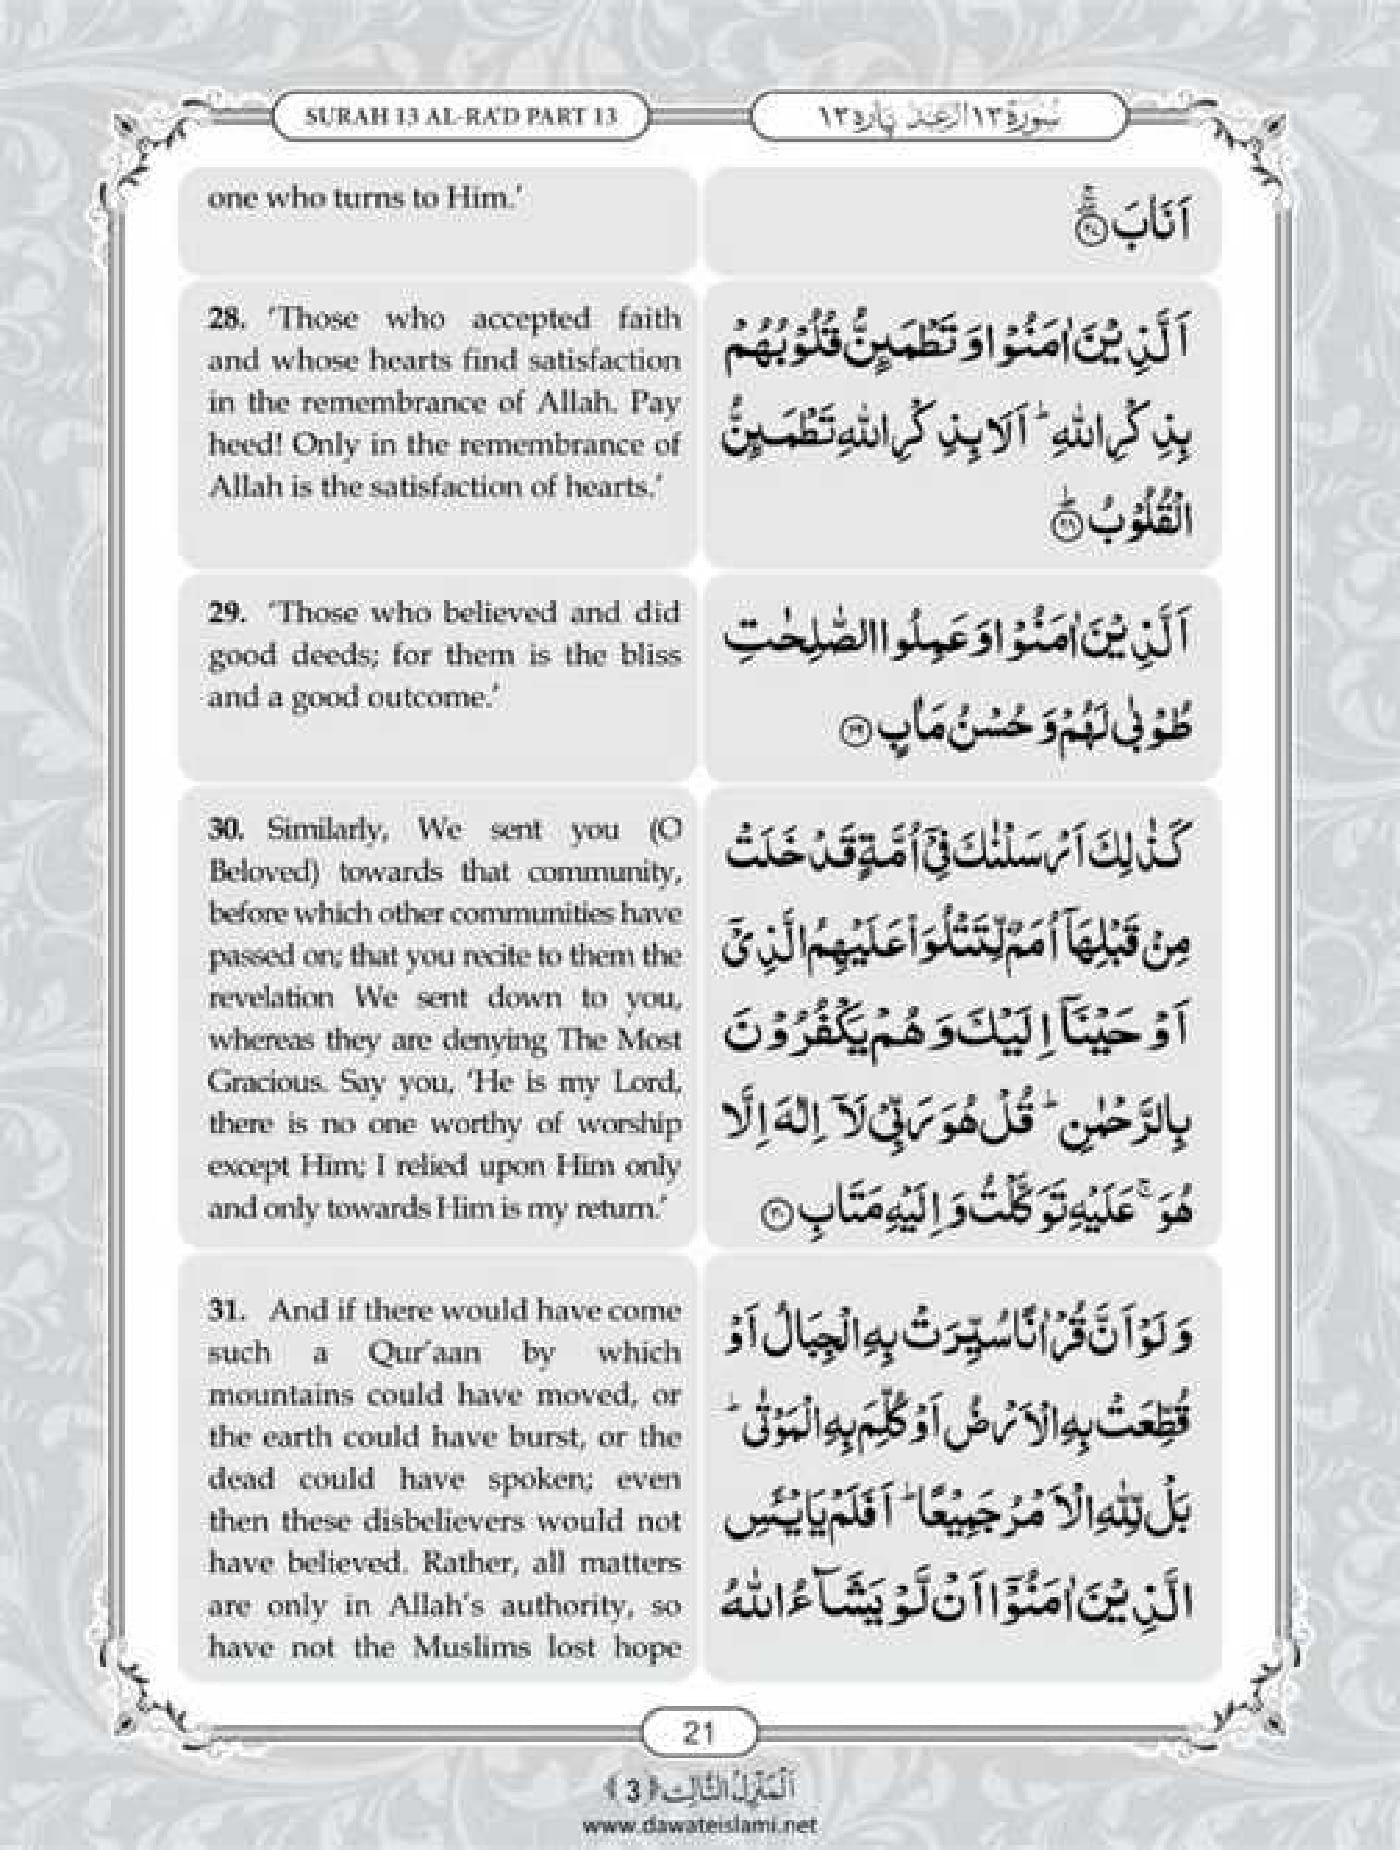 SURAH 13 AL-RA'D PART 13
سُوْرَةُ ١٣ الرَّعْد پاره ١٣
one who turns to Him.’
اَنَابَ ﴿٢٧﴾
28. ‘Those who accepted faith
and whose hearts find satisfaction
in the remembrance of Allah. Pay
heed! Only in the remembrance of
Allah is the satisfaction of hearts.’
اَلَّذِيْنَ اٰمَنُوْا وَ تَطْمَىِٕنُّ قُلُوْبُهُمْ
بِذِكْرِ اللّٰهِ ؕ اَلَا بِذِكْرِ اللّٰهِ تَطْمَىِٕنُّ
الْقُلُوْبُ ﴿٢٨﴾
29. ‘Those who believed and did
good deeds; for them is the bliss
and a good outcome.’
اَلَّذِيْنَ اٰمَنُوْا وَ عَمِلُوا الصّٰلِحٰتِ
طُوْبٰى لَهُمْ وَ حُسْنُ مَاٰبٍ ﴿٢٩﴾
30. Similarly, We sent you (O
Beloved) towards that community,
before which other communities have
passed on; that you recite to them the
revelation We sent down to you,
whereas they are denying The Most
Gracious. Say you, ‘He is my Lord,
there is no one worthy of worship
except Him; I relied upon Him only
and only towards Him is my return.’
كَذٰلِكَ اَرْسَلْنٰكَ فِیْۤ اُمَّةٍ قَدْ خَلَتْ
مِنْ قَبْلِهَاۤ اُمَمٌ لِّتَتْلُوَاۡ عَلَیْهِمُ الَّذِیْۤ
اَوْحَیْنَاۤ اِلَیْكَ وَ هُمْ یَكْفُرُوْنَ
بِالرَّحْمٰنِ ؕ قُلْ هُوَ رَبِّیْ لَاۤ اِلٰهَ اِلَّا
هُوَ ۚ عَلَیْهِ تَوَكَّلْتُ وَ اِلَیْهِ مَتَابِ ﴿٣٠﴾
31. And if there would have come
such a Qur’aan by which
mountains could have moved, or
the earth could have burst, or the
dead could have spoken; even
then these disbelievers would not
have believed. Rather, all matters
are only in Allah’s authority, so
have not the Muslims lost hope
وَ لَوْ اَنَّ قُرْاٰنًا سُیِّرَتْ بِهِ الْجِبَالُ اَوْ
قُطِّعَتْ بِهِ الْاَرْضُ اَوْ كُلِّمَ بِهِ الْمَوْتٰى ؕ
بَلْ لِّلّٰهِ الْاَمْرُ جَمِیْعًا ؕ اَفَلَمْ یَایْــٴَـسِ
الَّذِیْنَ اٰمَنُوْۤا اَنْ لَّوْ یَشَآءُ اللّٰهُ
21
اَلْمَنْزِلُ الثَّالِث ﴿ 3 ﴾
www.dawateislami.net